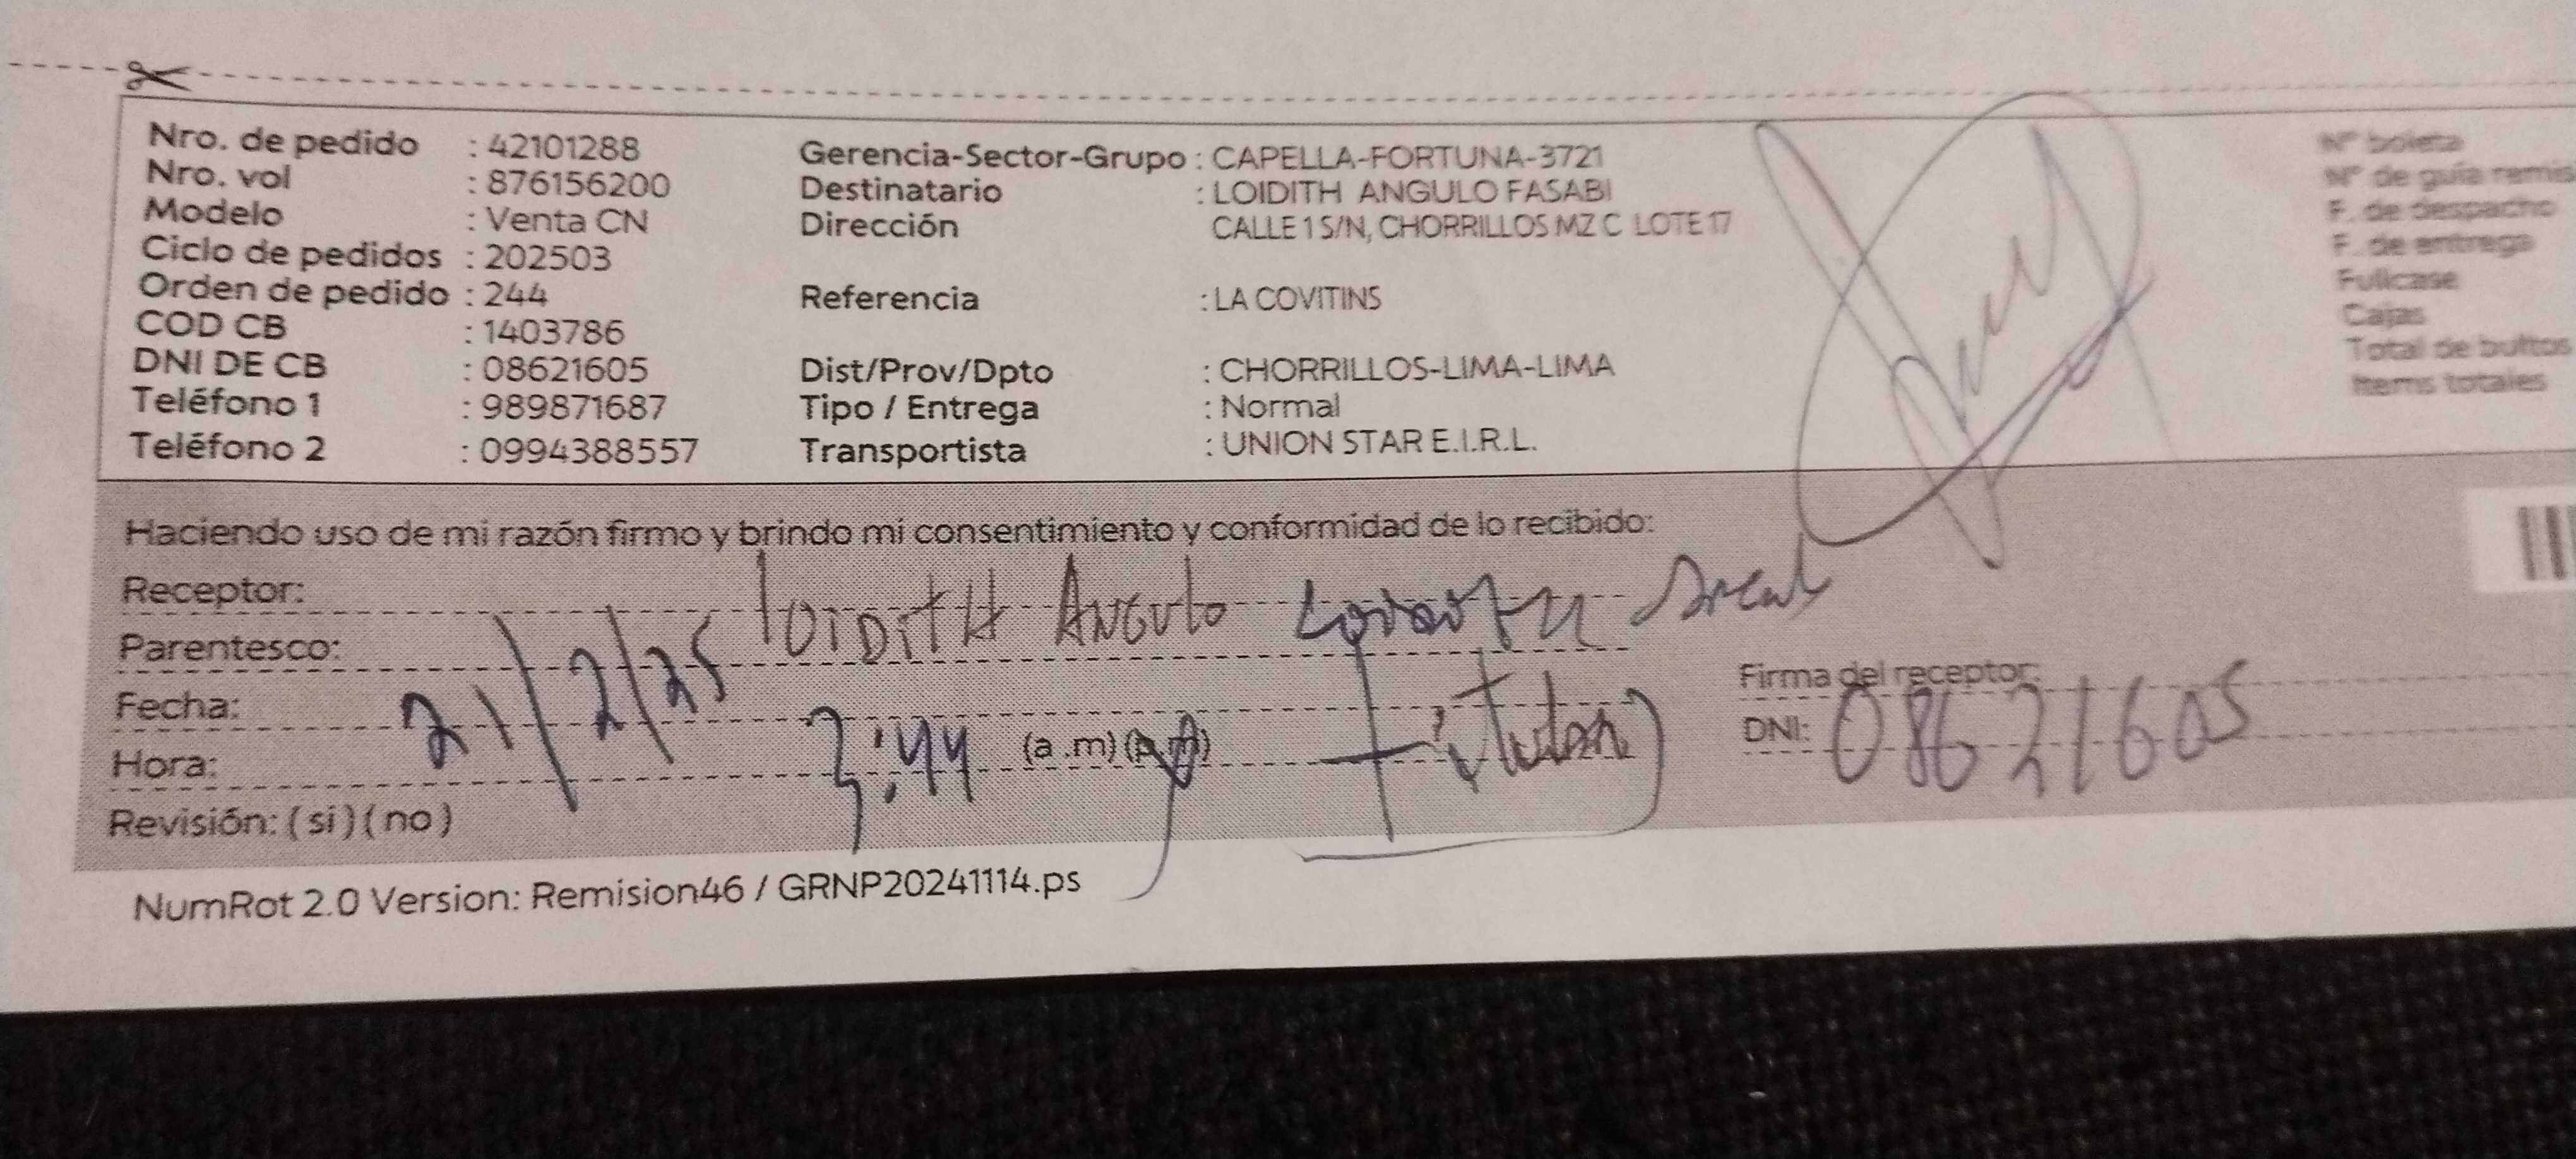 Nro. de pedido : 42101288
Nro. vol : 876156200
Modelo : Venta CN
Ciclo de pedidos : 202503
Orden de pedido : 244
COD CB : 1403786
DNI DE CB : 08621605
Teléfono 1 : 989871687
Teléfono 2 : 0994388557
Gerencia-Sector-Grupo : CAPELLA-FORTUNA-3721
Destinatario : LOIDITH ANGULO FASABI
Dirección CALLE 1 S/N, CHORRILLOS MZ C LOTE 17
Referencia : LA COVITINS
Dist/Prov/Dpto : CHORRILLOS-LIMA-LIMA
Tipo / Entrega : Normal
Transportista : UNION STAR E.I.R.L.
N° boleta
N° de guía remis
F. de despacho
F. de entrega
Fullcase
Cajas
Total de bultos
Items totales
Haciendo uso de mi razón firmo y brindo mi consentimiento y conformidad de lo recibido:
Receptor: loiDitH ANGulo
Parentesco:
Fecha: 21/2/25
Hora: 3:44 (a .m) (p.m)
Revisión: ( si ) ( no )
Firma del receptor:
DNI: 08621605
NumRot 2.0 Version: Remision46 / GRNP20241114.ps